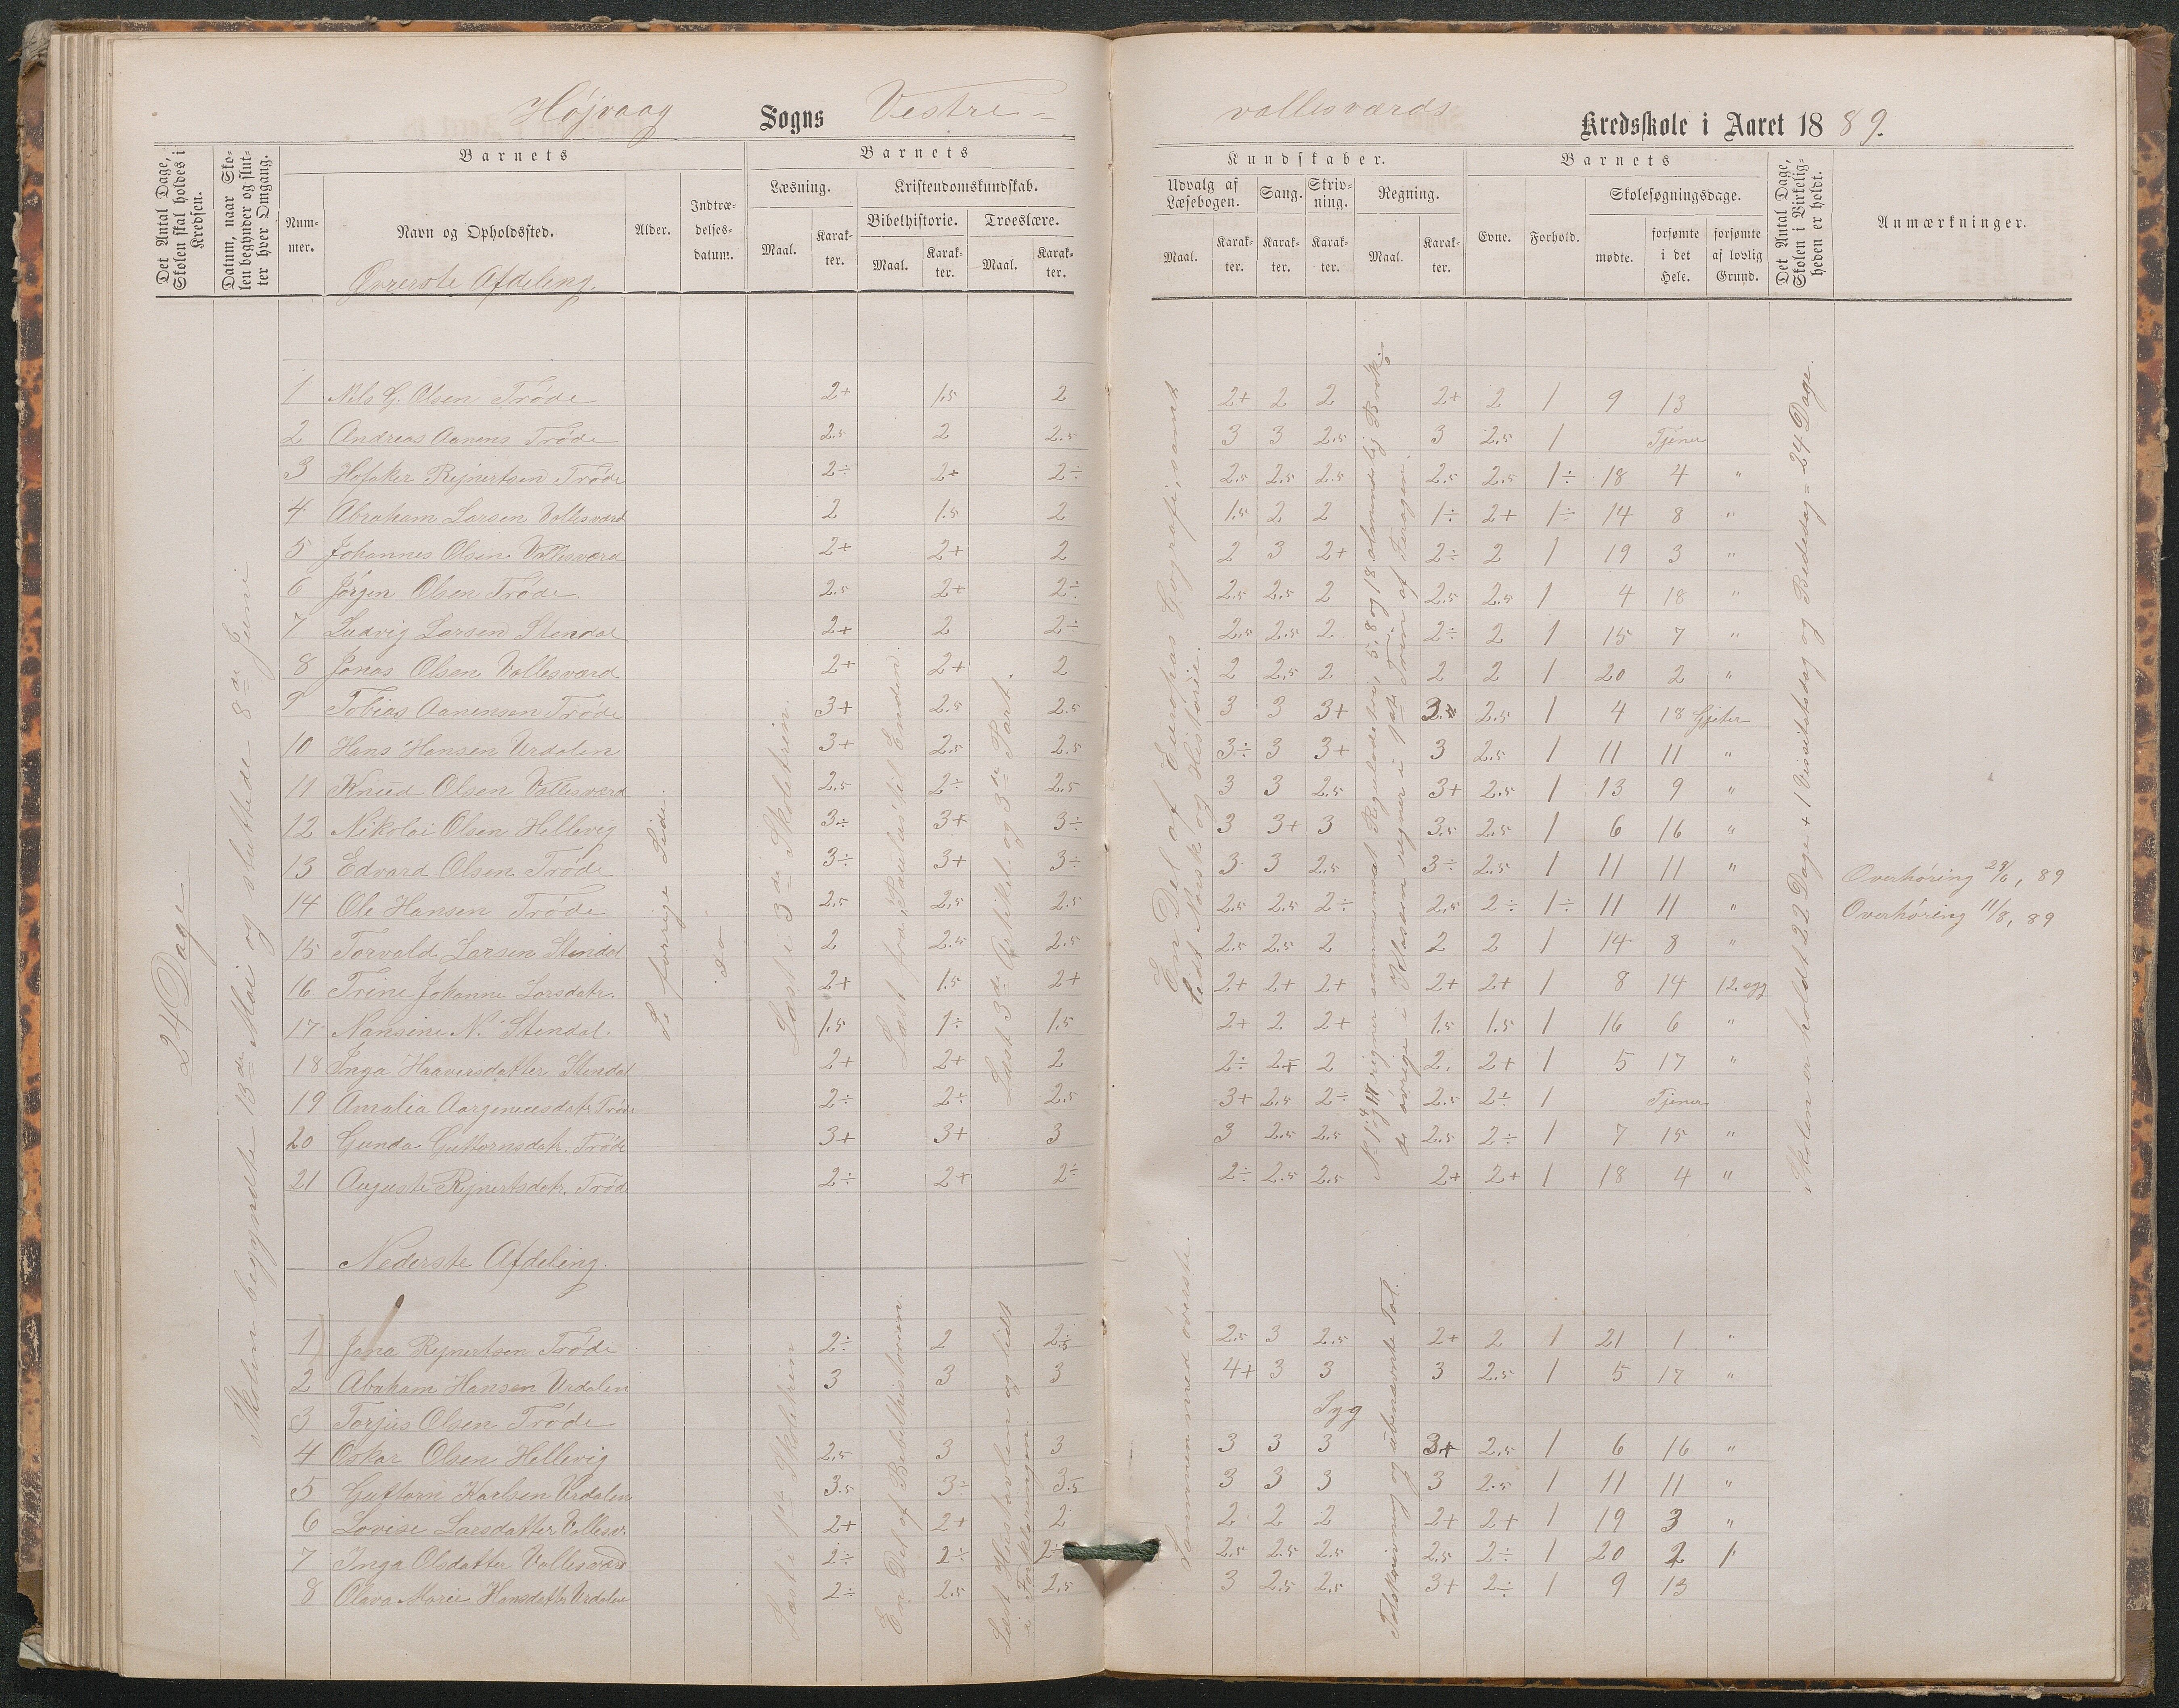 Højvaag Sogns Vestre-
vallesværds Kredsskole i Aaret 1889.
Det Antal Dage, Skolen skal holdes i Kredsen.
Datum, naar Skolen begynder og slutter hver Omgang.
Barnets
Nummer.
Navn og Opholdssted.
Alder.
Indtrædelsesdatum.
Barnets
Læsning.
Kristendomskundskab.
Bibelhistorie.
Troeslære.
Maal. Karakter. Maal. Karakter. Maal. Karakter.
Kundskaber.
Udvalg af Læsebogen.
Sang.
Skrivning.
Regning.
Maal. Karakter. Karakter. Karakter. Maal. Karakter.
Barnets
Evne. Forhold.
Skolesøgningsdage.
mødte.
forsømte i det Hele.
forsømte af lovlig Grund.
Det Antal Dage, Skolen i Virkeligheden er holdt.
Anmærkninger.
Øvrerste Afdeling.
24 Dage
Skolen begyndte 13de Mai og sluttede 8de Juni
Se forrige Side.
do
Læst i 3de Skoletrin.
Læst fra "Paulus" til Enden.
Læst 3de Artikel og 3die Part.
En Del af Europas Geografi, samt lidt Norsk og Historie.
Skolen er holdt 22 Dage + 1 Visitatsdag og Bededag = 24 Dage.
1 Nils G. Olsen Trøde 2+ 1.5 2 2+ 2 2 2+ 2 1 9 13
2 Andreas Aanens Trøde 2.5 2 2.5 3 3 2.5 3 2.5 1 Tjener
3 Hofaker Rejnertsen Trøde 2÷ 2+ 2÷ 2.5 2.5 2.5 2.5 2.5 1÷ 18 4 "
4 Abraham Larsen Vallesværd 2 1.5 2 1.5 2 2 1÷ 2+ 1÷ 14 8 "
5 Johannes Olsen Vallesværd 2+ 2+ 2 2 3 2+ 2÷ 2 1 19 3 "
6 Jørgen Olsen Trøde. 2.5 2+ 2÷ 2.5 2.5 2 2.5 2.5 1 4 18 "
7 Ludvig Larsen Stendal 2+ 2 2÷ 2.5 2.5 2 2÷ 2 1 15 7 "
8 Jonas Olsen Vallesværd 2+ 2+ 2 2 2.5 2 2 2 1 20 2 "
9 Tobias Aanensen Trøde 3+ 2.5 2.5 3 3 3+ 3+ 2.5 1 4 18 Gjeter
10 Hans Hansen Urdalen 3+ 2.5 2.5 3÷ 3 3+ 3 2.5 1 11 11 "
11 Knud Olsen Vallesværd 2.5 2÷ 2.5 3 3 2.5 3+ 2.5 1 13 9 "
12 Nikolai Olsen Hellevig 3÷ 3+ 3÷ 3 3+ 3 3.5 2.5 1 6 16 "
13 Edvard Olsen Trøde 3÷ 3+ 3÷ 3 3 2.5 3÷ 2.5 1 11 11 " Overhøring 29/6, 89
14 Ole Hansen Trøde 2.5 2.5 2.5 2.5 2.5 2÷ 2.5 2÷ 1÷ 11 11 " Overhøring 11/8, 89
15 Torvald Larsen Stendal 2 2.5 2.5 2.5 2.5 2 2 2 1 14 8 "
16 Trine Johanne Larsdatr. 2+ 1.5 2+ 2+ 2+ 2+ 2+ 2+ 1 8 14 12 syg
17 Nansine N. Stendal. 1.5 1÷ 1.5 2+ 2 2+ 1.5 1.5 1 16 6 "
18 Inga Haaversdatter Stendal 2+ 2+ 2 2÷ 2+ 2 2. 2+ 1 5 17 "
19 Amalia Aargenæsdatr Trøde 2÷ 2÷ 2.5 3+ 2.5 2÷ 2.5 2÷ 1 Tjener
20 Gunda Guttormsdatr. Trøde 3+ 3+ 3 3 2.5 2.5 2.5 2÷ 1 7 15 "
21 Auguste Rejnertsdatr. Trøde 2÷ 2+ 2÷ 2÷ 2.5 2.5 2+ 2+ 1 18 4 "
Nederste Afdeling.
Læst i 1ste Skoletrin
En Del af Bibelhistorien.
Læst Hustavlen og lidt i Forklaringen.
Sammen med øverste.
Talskrivning og ubenævnte Tal.
1 Jana Rejnertsen Trøde 2÷ 2 2.5 2.5 3 2.5 2+ 2 1 21 1 "
2 Abraham Hansen Urdalen 3 3 3 4+ 3 3 3 2.5 1 5 17 "
3 Torjus Olsen Trøde Syg
4 Oskar Olsen Hellevig 2.5 3 3 3 3 3 3+ 2.5 1 6 16 "
5 Guttorm Karlsen Urdalen 3.5 3÷ 3.5 3 3 3 3 2.5 1 11 11 "
6 Lovise Larsdatter Vallesv. 2+ 2+ 2 2 2 2 2+ 2+ 1 19 3 "
7 Inga Olsdatter Vallesværd 2÷ 2÷ 2÷ 2.5 2.5 2.5 2.5 2÷ 1 20 2 1
8 Olava Marie Hansdatter Urdalen 2÷ 2.5 2.5 3 2.5 2.5 3+ 2÷ 1 9 13